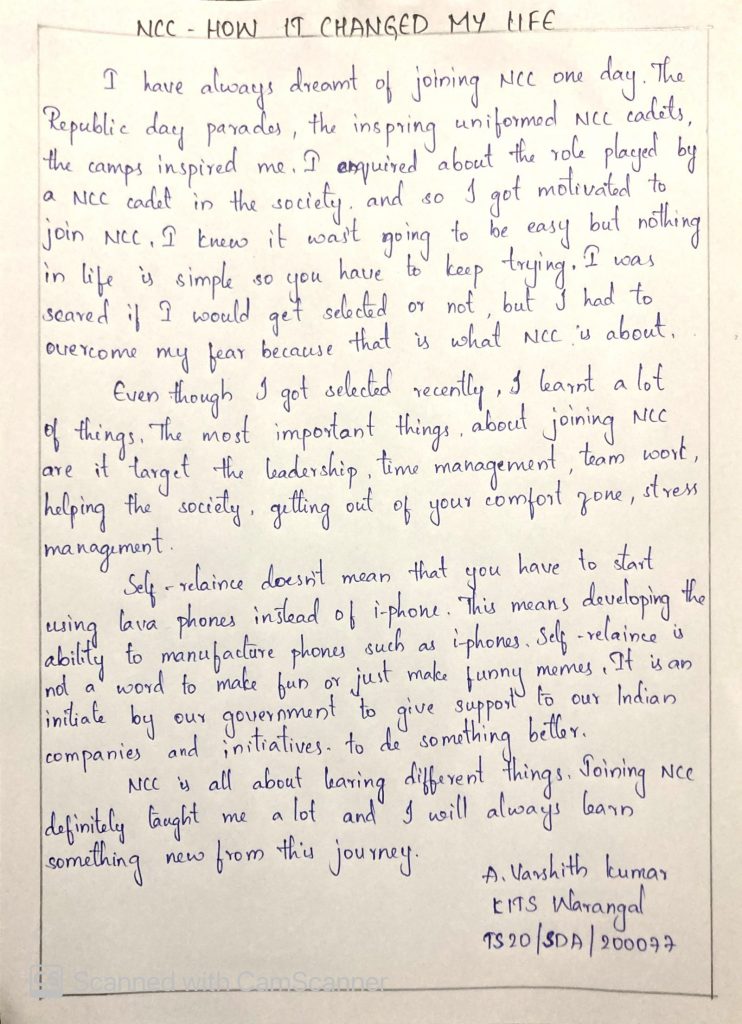 NCC - HOW IT CHANGED MY LIFE
I have always dreamt of joining NCC one day. The
Republic day parades, the inspring uniformed NCC cadets,
the camps inspired me. I enquired about the role played by
a NCC cadet in the society. and so I got motivated to
join NCC. I knew it was't going to be easy but nothing
in life is simple so you have to keep trying. I was
scared if I would get selected or not, but I had to
overcome my fear because that is what NCC is about.
Even though I got selected recently, I learnt a lot
of things. The most important things. about joining NCC
are it target the leadership, time management, team work,
helping the society, getting out of your comfort zone, stress
management.
Self-relaince doesn't mean that you have to start
using lava phones instead of i-phone. This means developing the
ability to manufacture phones such as i-phones. Self-relaince is
not a word to make fun or just make funny memes. It is an
initiate by our government to give support to our Indian
companies and initiatives. to do something better.
NCC is all about learing different things. Joining NCC
definitely taught me a lot and I will always learn
something new from this journey.
A. Varshith kumar
KITS Warangal
TS20/SDA/200077
CS Scanned with CamScanner